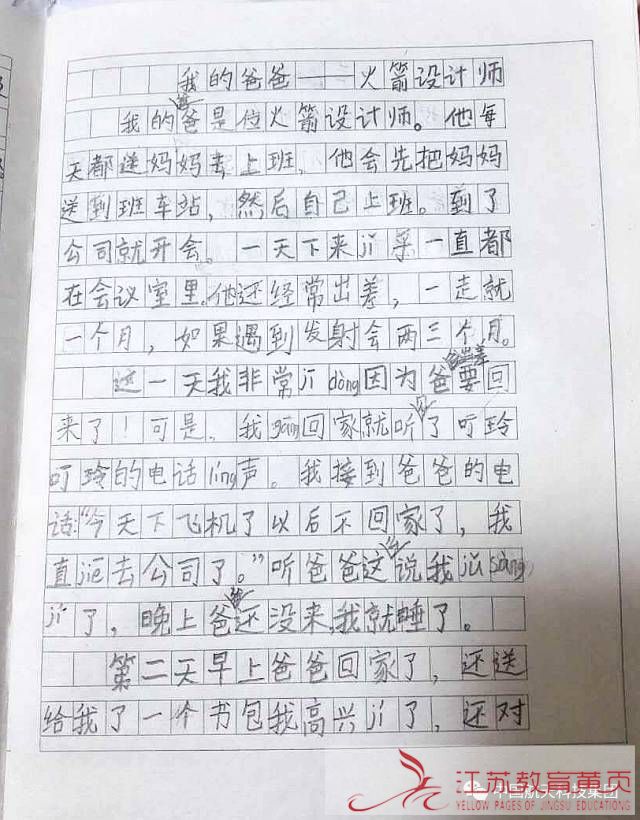 我的爸爸——火箭设计师
我的爸爸是位火箭设计师。他每
天都送妈妈去上班，他会先把妈妈
送到班车站，然后自己上班。到了
公司就开会。一天下来jī采一直都
在会议室里.他还经常出差，一走就
一个月，如果遇到发射会两三个月。
这一天我非常jī dòng因为爸爸出差要回
来了！可是，我gāng回家就听见了叮玲
叮玲的电话líng声。我接到爸爸的电
话:“今天下飞机了以后不回家了，我
直jiē去公司了。”听爸爸这么说我jǔ sàng
jí了，晚上爸爸还没来,我就睡了。
第二天早上爸爸回家了，还送
给我了一个书包我高兴jí了，还对
中国航天科技集团
江苏教育黄页
YELLOW PAGES OF JINGSU EDUCATIONG